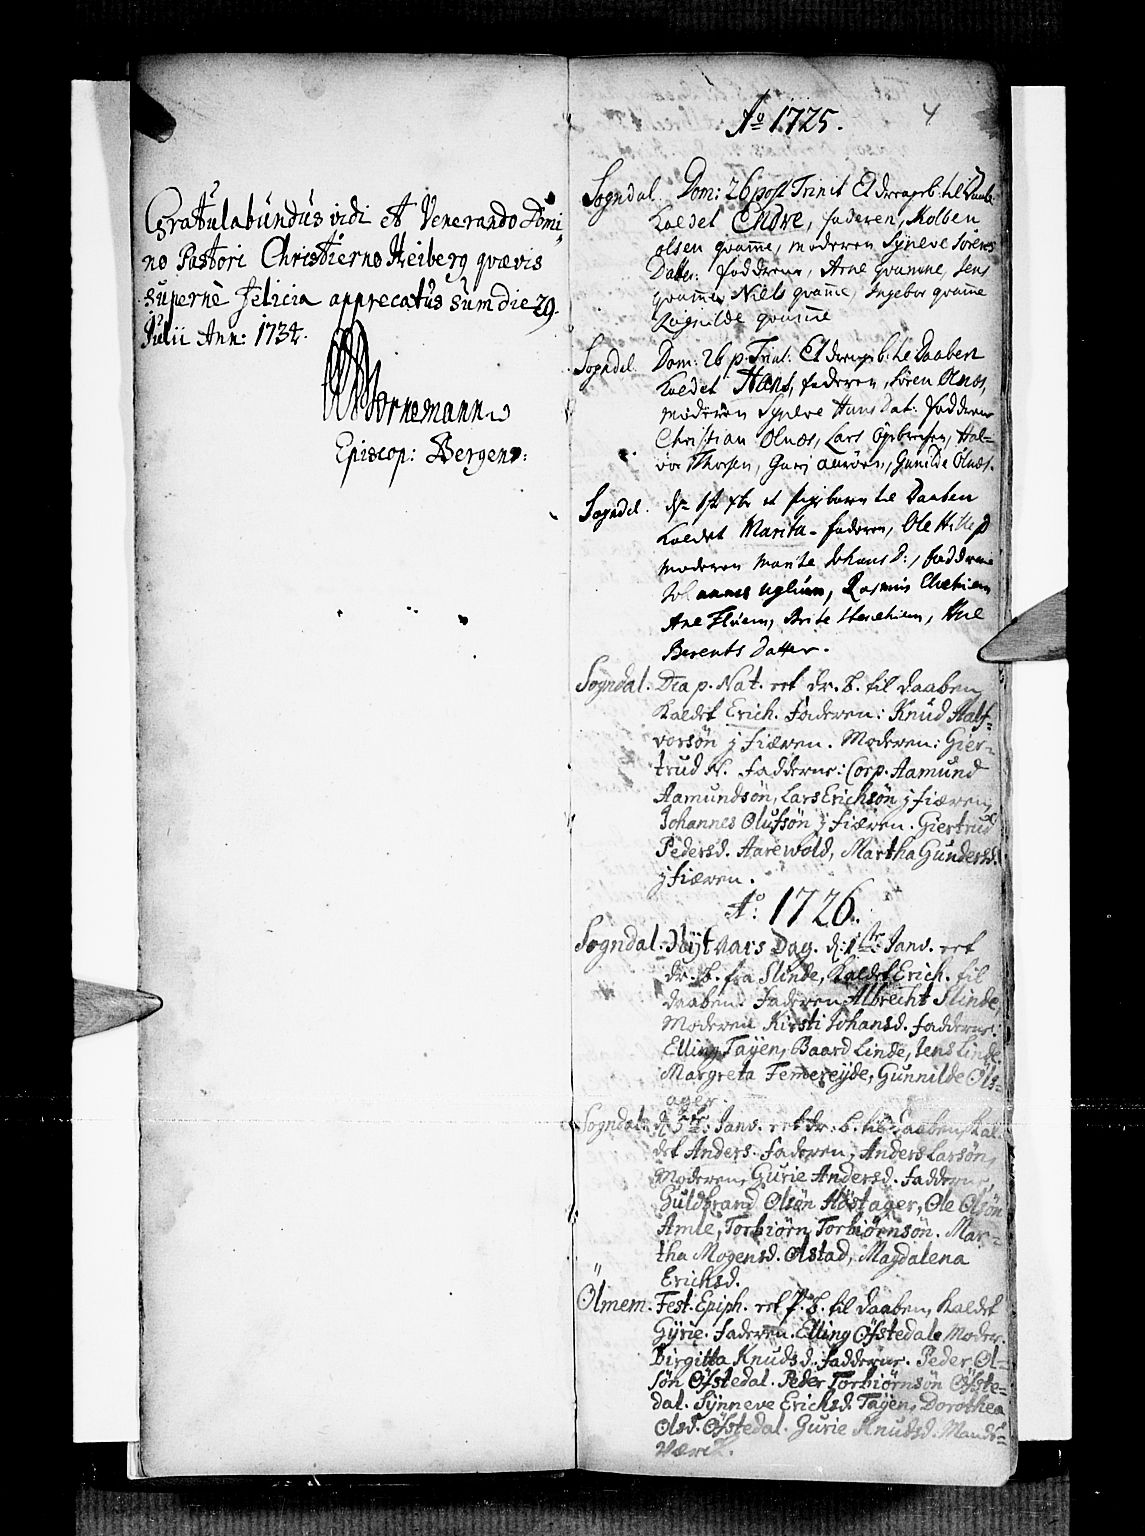 Gratulabundus vidi et Venerando Domi
no Pastori Christierno Heiberg qvævis
superne felicia apprecatus sum die 29.
Julii Ann: 1734.
Bornemann
Episcop: Bergens:
4
Ao 1725.
Sogndal. Dom: 26 post Trinit Et drengeb: til Daab
Kaldet Endre, faderen, Kolben
olsen qvamme, moderen Syneve Sørens
Datter. fadderne, Arne qvamme, Jens
qvamme, Niels qvamme, Ingebor qvamme
Ragnilde qvamme
Sogndal. Dom: 26 p. Trinit: Et drengb: til Daaben
Kaldet Hans, faderen, Søren Olnæs,
moderen Syneve Hans Dat: fadderne
Christian Olnæs, Lars, Hal-
vor Thorsen, Guri, Gunilde Olnæs.
Sogndal. et pigebarn til Daaben
Kaldet Marita. faderen, Ole
moderen Marite Johans D:, fadderne
Johannes uglum, Rasmus
Ane Fluem, Brite, Ane
Berents Datter.
Sogndal. Dca p. Nat. eet dr. b. til daaben
Kaldet Erich. Faderen: Knud Half-
vorsøn j fiæren. Moderen: Gier-
trud N. Fadderne: Corp. Aamund
Aamundsøn, Lars Erichsøn j fiæren,
Johannes Olufsøn j fiæren. Giertrud
Pedersd. Aarewold, Martha Gundersd.
j fiæren.
Ao: 1726.
Sogndal. Nÿtaars Dag. d: 1ste Janv. eet
dr. b. fra Slinde, Kaldet Erich. til
daaben. Faderen Albrecht Slinde,
Moderen Kirsti Johansd. Fadderne:
Elling Taÿen, Baard Linde, Jens Linde
Margreta Femereÿde, Gunnilde Ols-
ager.
Sogndal. d. 5te: Janv. eet dr. b. til Daaben, Kal
det Anders. Faderen, Anders Larsøn,
Moderen, Gurie Andersd. Fadderne,
Guldbrand Olsøn Høstager, Ole Olsøn
Amle, Torbiørn Torbiørnsøn. Mar-
tha Mogensd. Olstad, Magdalena
Erichsd.
Ölmem. Fest. Epiph. eet p. b. til daaben, Kaldet
Gÿrie. Faderen. Elling Øfstedal. Moder.
Birgitta Knudsd. Fadderne. Peder Ol-
søn Øfstedal. Peder Torbiørnsøn Øfste-
dal. Sÿnneve Erichsd. Taÿen, Dorothea
Olsd. Øfstedal. Gurie Knudsd. Mands-
værch.